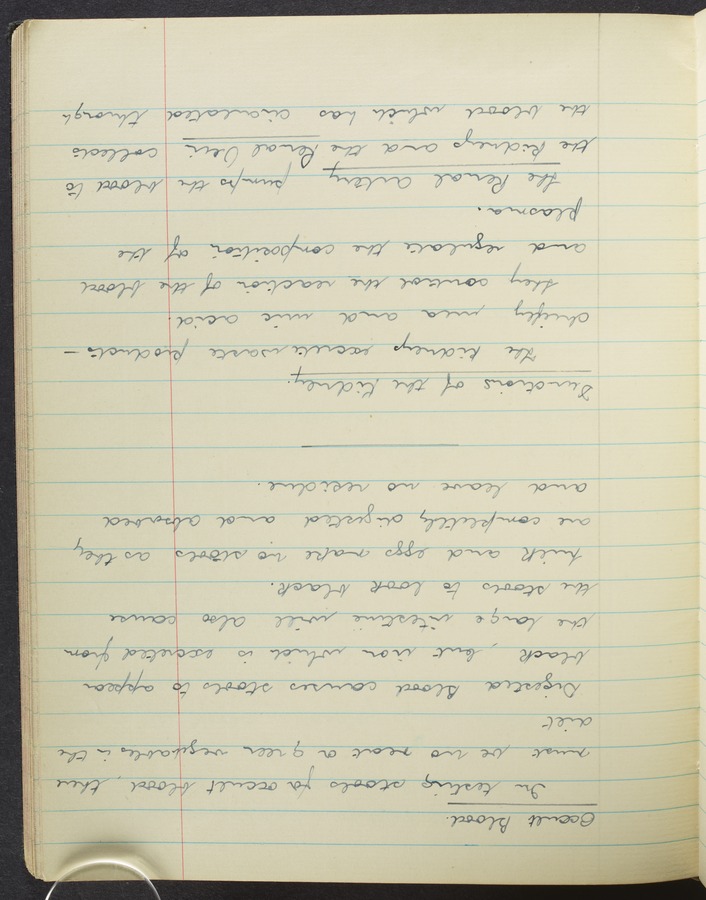 Occult Blood.
In testing stools for occult blood, there
must be no meat or green vegetables in the
diet
Digested Blood causes stools to appear
black, but iron which is excreted from
the large intestine will also cause
the stools to look black.
Milk and eggs make no stools as they
are completely digested and absorbed
and leave no residue.
Functions of the Kidney.
The kidneys excrete waste products -
chiefly urea and uric acid.
they control the reaction of the blood
and regulate the composition of the
plasma.
the Renal artery pumps the blood to
the kidneys and the Renal Vein collects
the blood which has circulated through